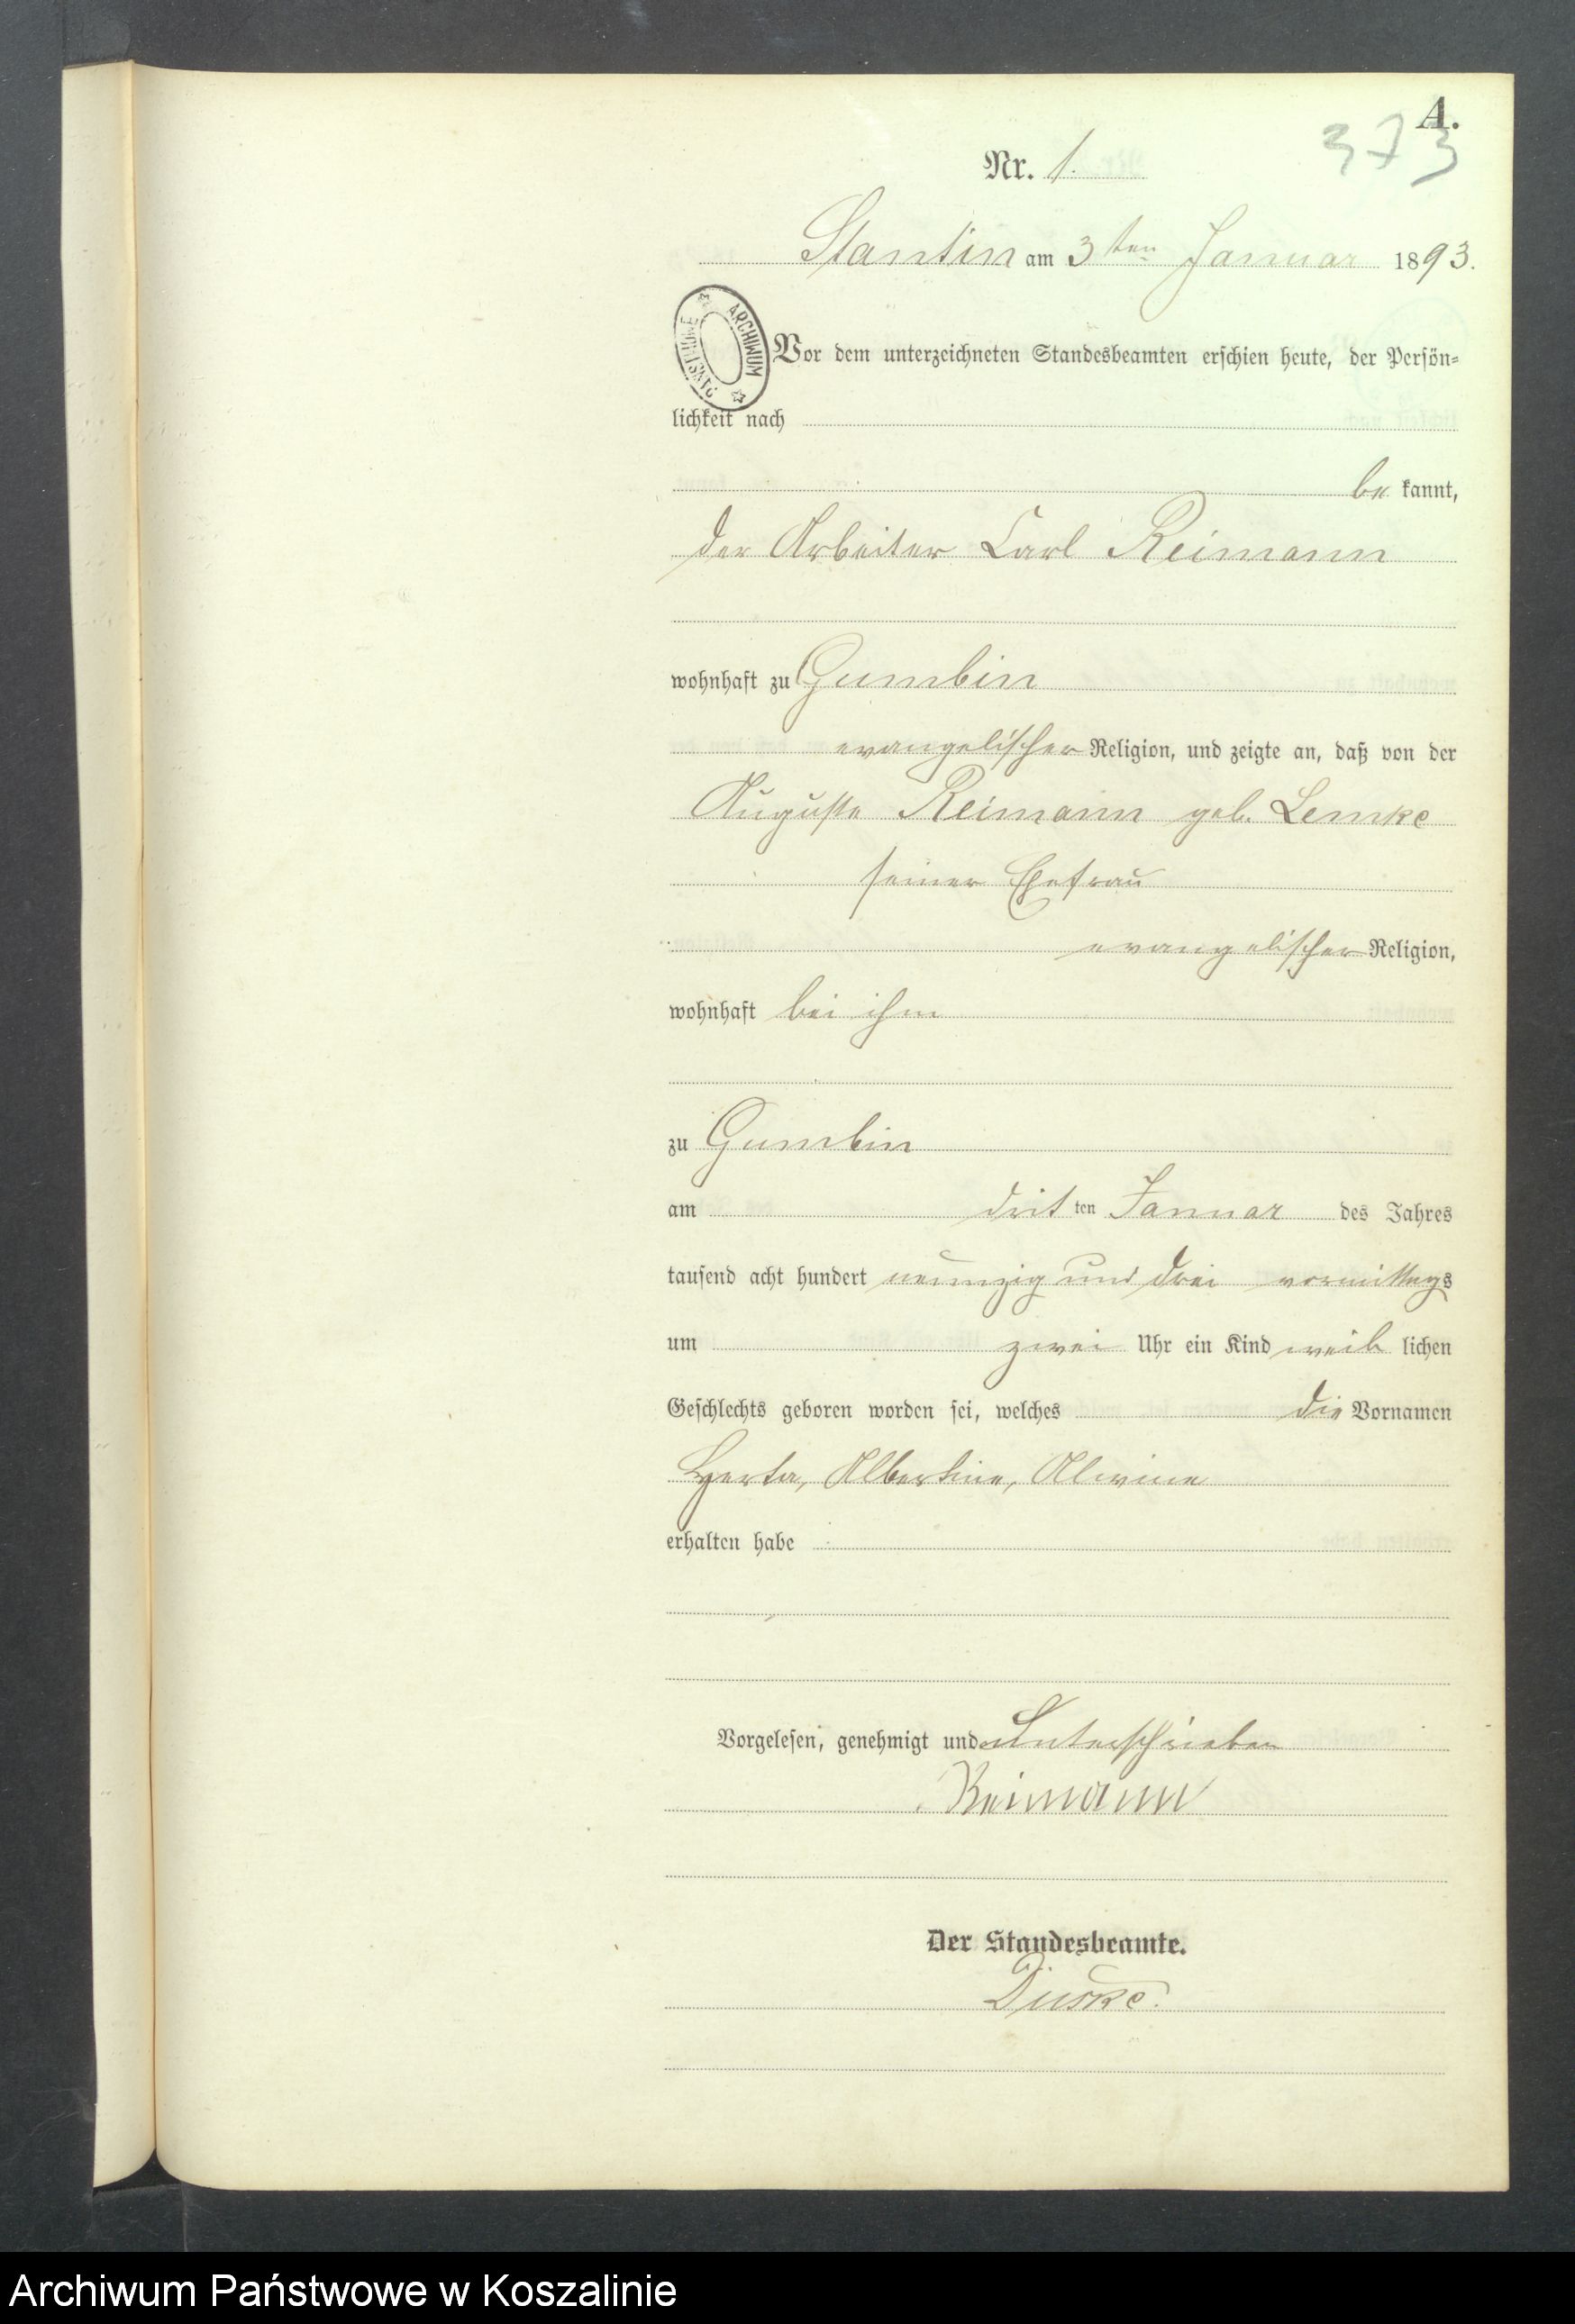 A.
373
Nr. 1.
Stantin am 3ten Januar 1893.
ARCHIWUM PAŃSTWOWE
Vor dem unterzeichneten Standesbeamten erschien heute, der Persön=
lichkeit nach
be kannt,
der Arbeiter Carl Reimann
wohnhaft zu Gumbin
evangelischer Religion, und zeigte an, daß von der
Auguste Reimann geb. Lemke
seiner Ehefrau
evangelischer Religion,
wohnhaft bei ihm
zu Gumbin
am drit ten Januar des Jahres
tausend acht hundert neunzig und drei vormittags
um zwei Uhr ein Kind weib lichen
Geschlechts geboren worden sei, welches die Vornamen
Herta, Albertine, Alwine
erhalten habe
Vorgelesen, genehmigt und unterschrieben
Reimann
Der Standesbeamte.
Archiwum Państwowe w Koszalinie